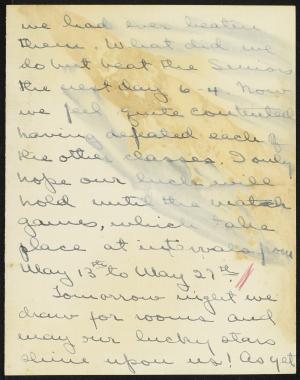 we had ever beaten
them. What did we
do but beat the Seniors
the next day 6-4. Now
we feel quite contented
having defeated each of
the other classes. I only
hope our luck will
hold until the match
games, which take
place at intervals from
May 13th to May 27th.
Tomorrow night we
draw for rooms and
may our lucky stars
shine upon us! As yet